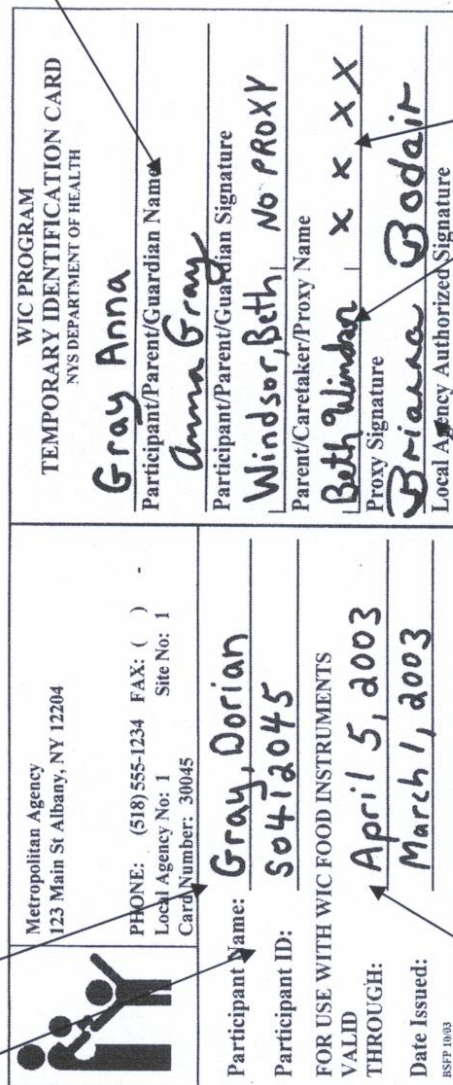 Metropolitan Agency
123 Main St Albany, NY 12204
PHONE: (518) 555-1234 FAX: ( ) -
Local Agency No: 1 Site No: 1
Card Number: 30045
Participant Name: Gray, Dorian
Participant ID: S0412045
FOR USE WITH WIC FOOD INSTRUMENTS
VALID
THROUGH: April 5, 2003
Date Issued: March 1, 2003
BSFP 10/03
WIC PROGRAM
TEMPORARY IDENTIFICATION CARD
NYS DEPARTMENT OF HEALTH
Gray Anna
Participant/Parent/Guardian Name
Anna Gray
Participant/Parent/Guardian Signature
Windsor, Beth, NO PROXY
Parent/Caretaker/Proxy Name
Beth Windsor X X X X
Proxy Signature
Brianna Bodair
Local Agency Authorized Signature